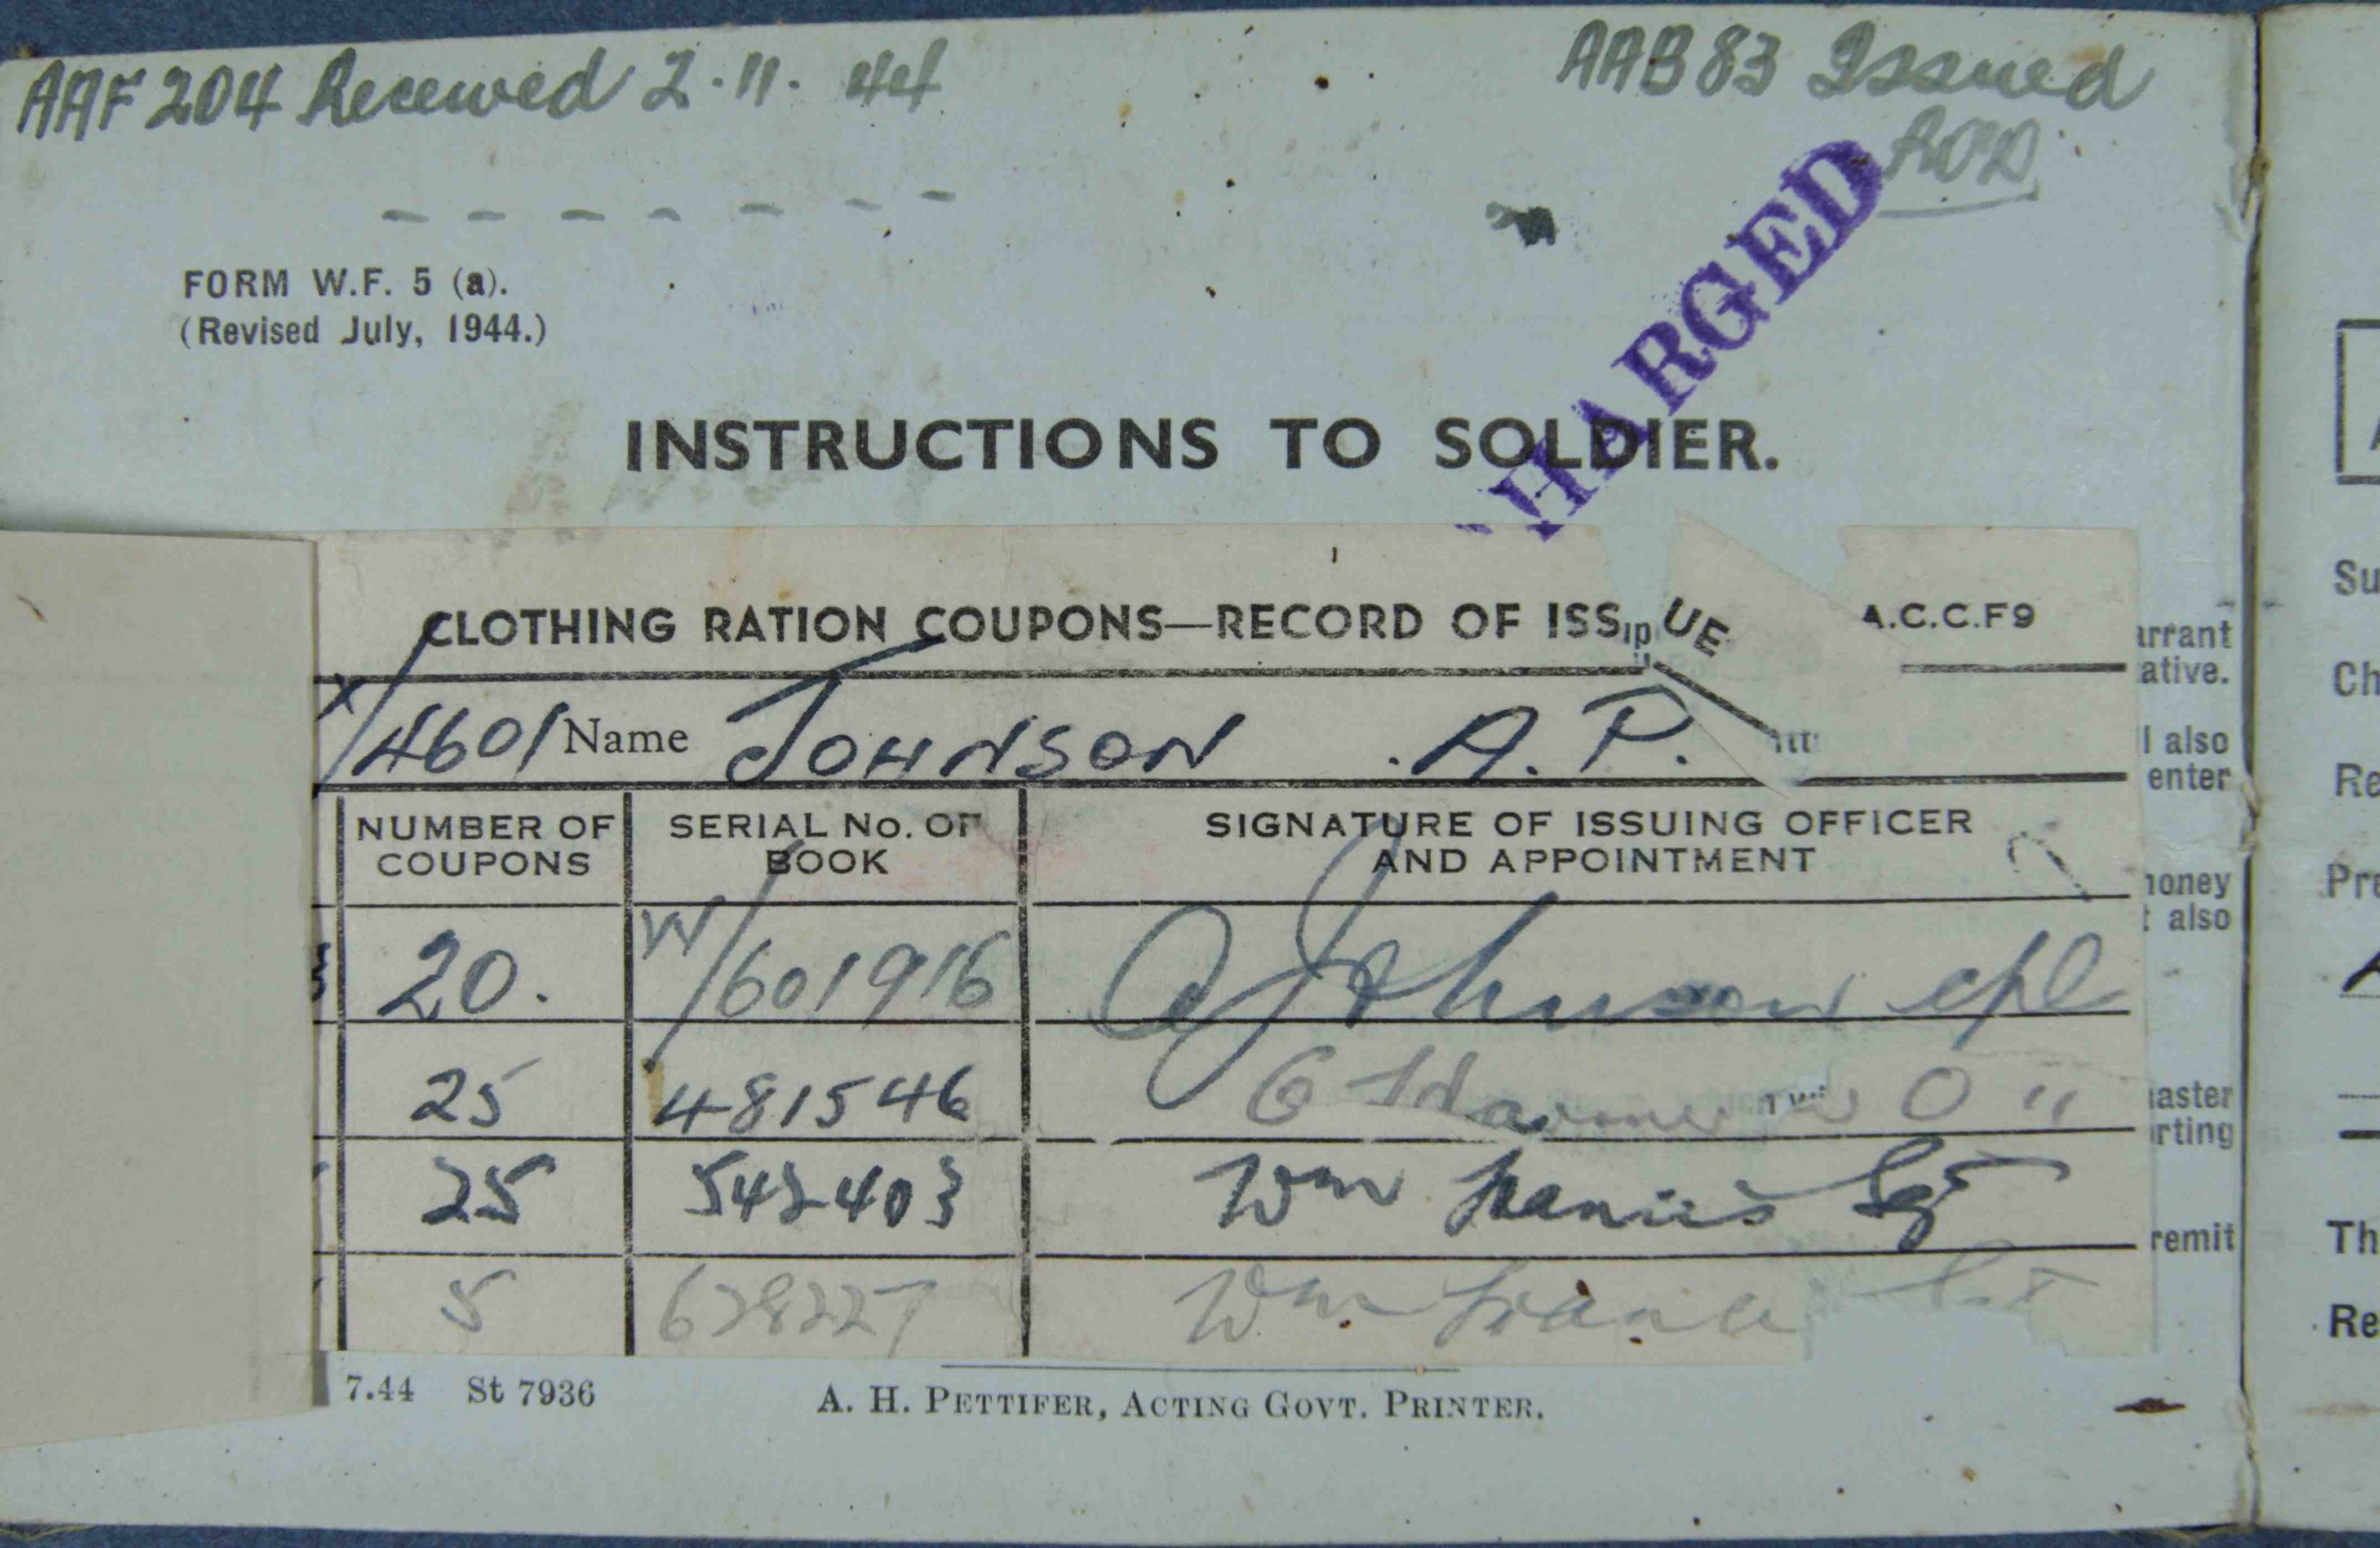 AAF 204 Received 2.11.44
AAB 83 Issued
HARGED
FORM W.F. 5 (a).
(Revised July, 1944.)
INSTRUCTIONS TO SOLDIER.
CLOTHING RATION COUPONS—RECORD OF ISSUE
A.C.C.F9
X/4601 Name JOHNSON A. P.
NUMBER OF COUPONS
SERIAL No. OF BOOK
SIGNATURE OF ISSUING OFFICER AND APPOINTMENT
20. W/601916 A Johnson cpl
25 481546
25 542403 Wm Sgt
5 628227 Wm
arrant
ative.
l also
enter
money
t also
master
rting
remit
7.44 St 7936
A. H. PETTIFER, ACTING GOVT. PRINTER.
Su
Ch
Re
Pre
Th
Re